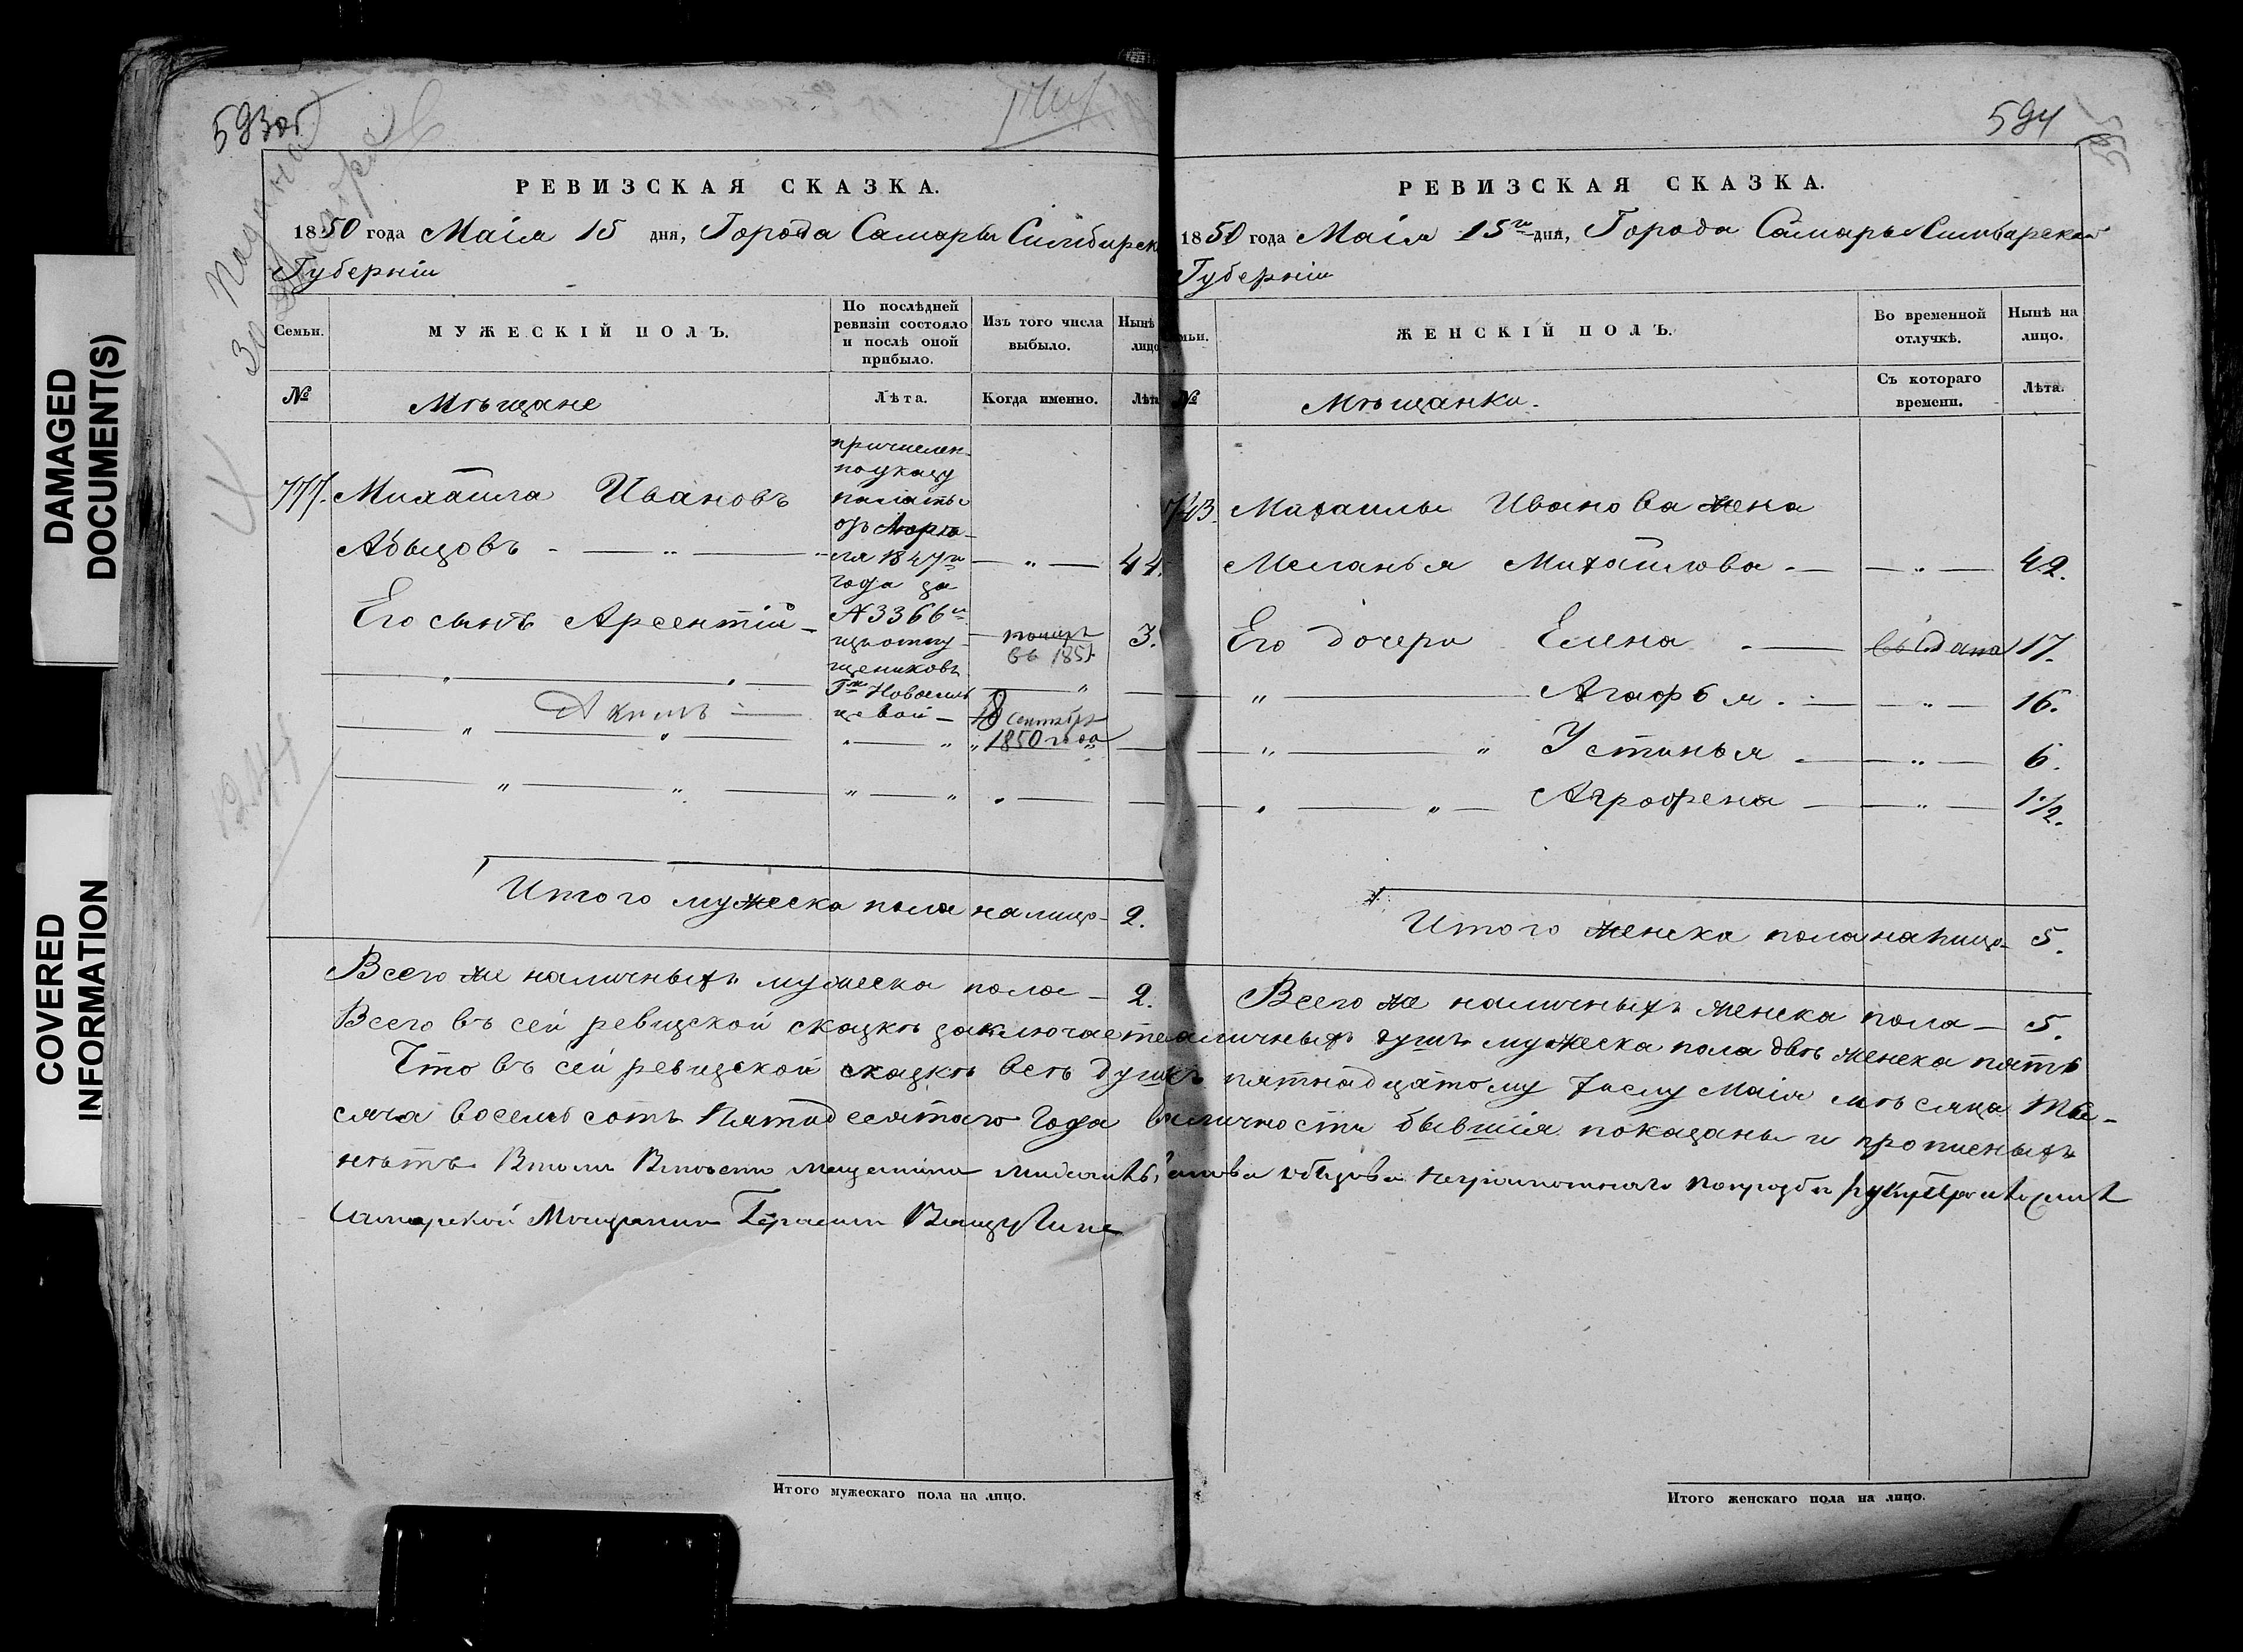 DAMAGED
DOCUMENT(S)
COVERED
INFORMATION
593об.
РЕВИЗСКАЯ СКАЗКА.
1850 года Маія 15 дня, Города Самары Симбирск
Губерніи
Семьи.
МУЖЕСКІЙ ПОЛЪ.
По послѣдней
ревизіи состояло
и послѣ оной
прибыло.
Изъ того числа
выбыло.
Нынѣ
лицо
№
Мѣщане
Лѣта.
Когда именно.
Лѣта
причислен
по указу
палаты
1847го
года за
N 3366м
изъ отпу-
щениковъ
Гжи Новосиль
цевой —
777. Михайла Ивановъ
Абызовъ - — " — 44.
Его сынъ Арсентій — 3.
въ 1851
Акимъ —
18 сентября
1850 года
Итого мужеска пола на лицо - 2.
Всего же наличныхъ мужеска пола — 2.
594
РЕВИЗСКАЯ СКАЗКА.
1850 года Маія 15го дня, Города Самары Симбирской
Губерніи
мьи.
ЖЕНСКІЙ ПОЛЪ.
Во временной
отлучкѣ.
Нынѣ на
лицо.
№
Мѣщанки.
Съ котораго
времени.
Лѣта.
Михайлы Иванова жена
Меланья Михайлова - — " — 42.
Его дочери Елена - — 17.
" — Агафья - — " — 16.
" — " Устинья - — " — 6.
" — " — Аграфена — " — 1 1/2.
Итого женска пола на лицо - 5.
Всего же наличныхъ женска пола — 5.
Всего въ сей ревизской сказкѣ заключается наличныхъ душъ мужеска пола двѣ женска пять
Что въ сей ревизской сказкѣ всѣ души къ пятнадцатому числу Маія мѣсяца Ты-
сяча восемь сотъ Пятидесятаго Года въ наличности бывшія показаны и прописныхъ
нѣтъ
Самарской Мещанин Герасим
Итого мужескаго пола на лицо.
Итого женскаго пола на лицо.